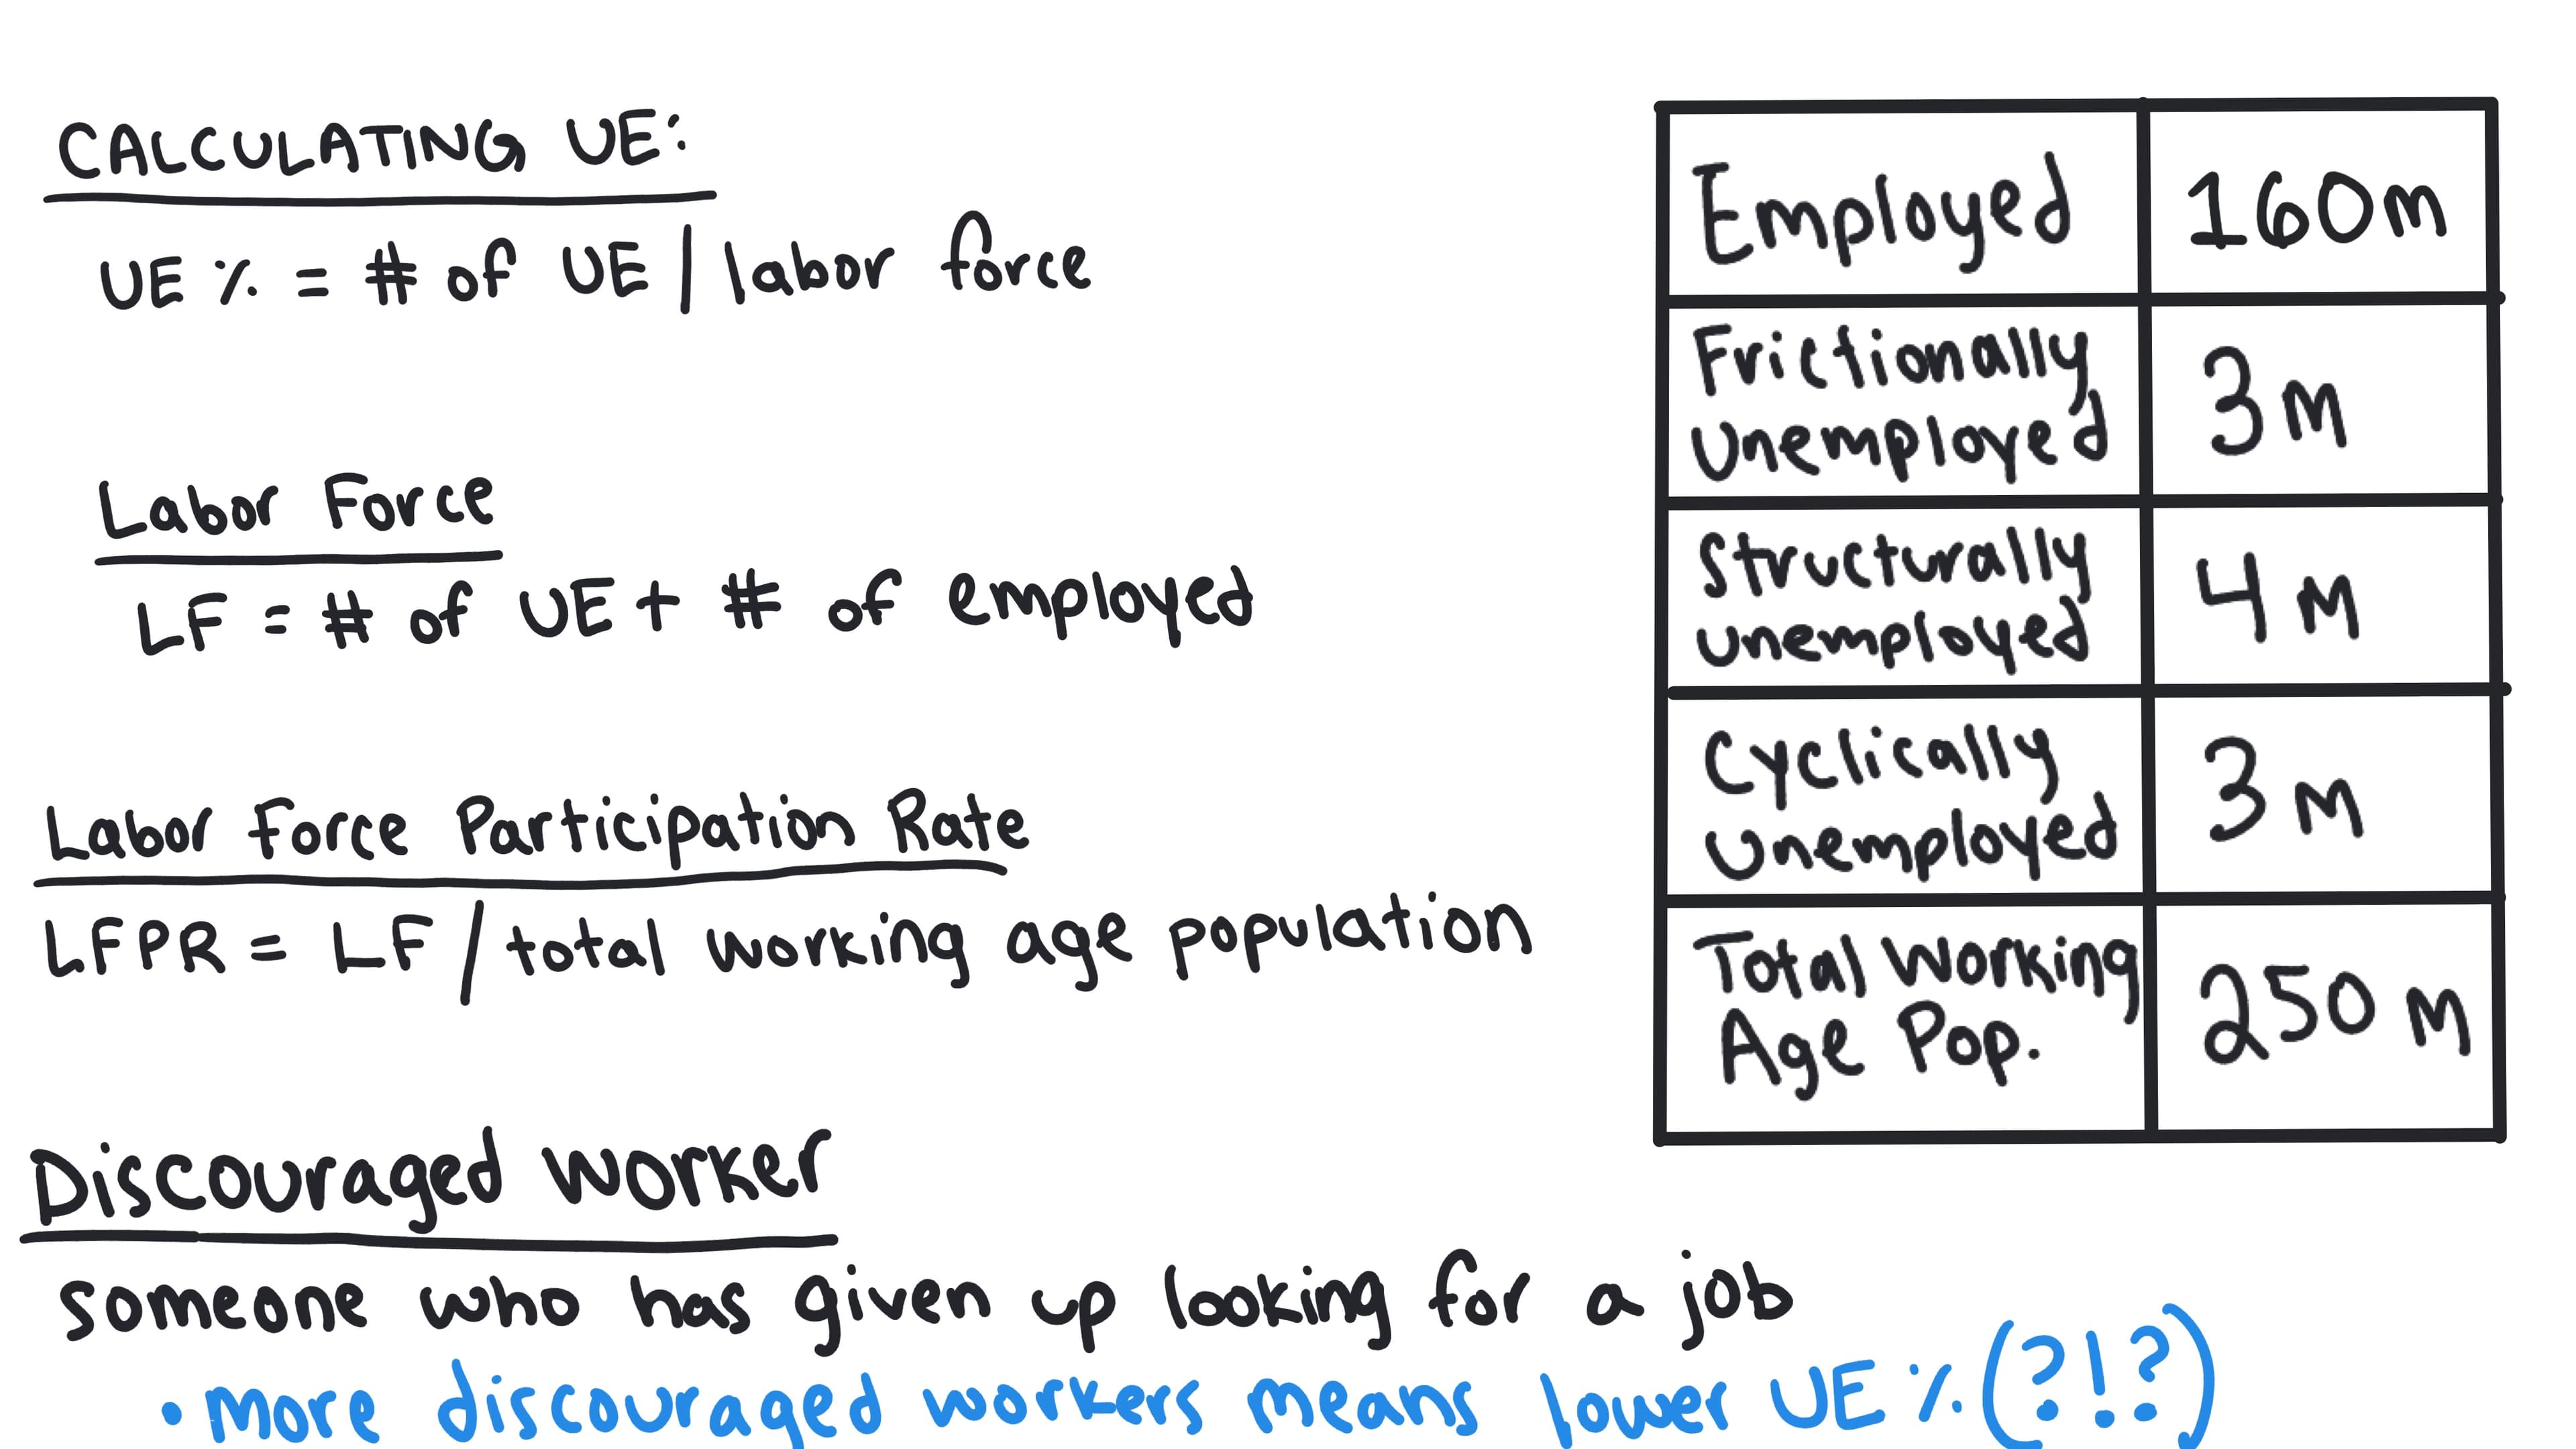 CALCULATING UE:
UE % = # of UE / labor force
Labor Force
LF = # of UE + # of employed
Labor Force Participation Rate
LFPR = LF / total working age population
Discouraged Worker
someone who has given up looking for a job
• more discouraged workers means lower UE % (?!?)
Employed 160m
Frictionally
Unemployed 3m
Structurally
Unemployed 4m
Cyclically
Unemployed 3m
Total Working
Age Pop. 250m